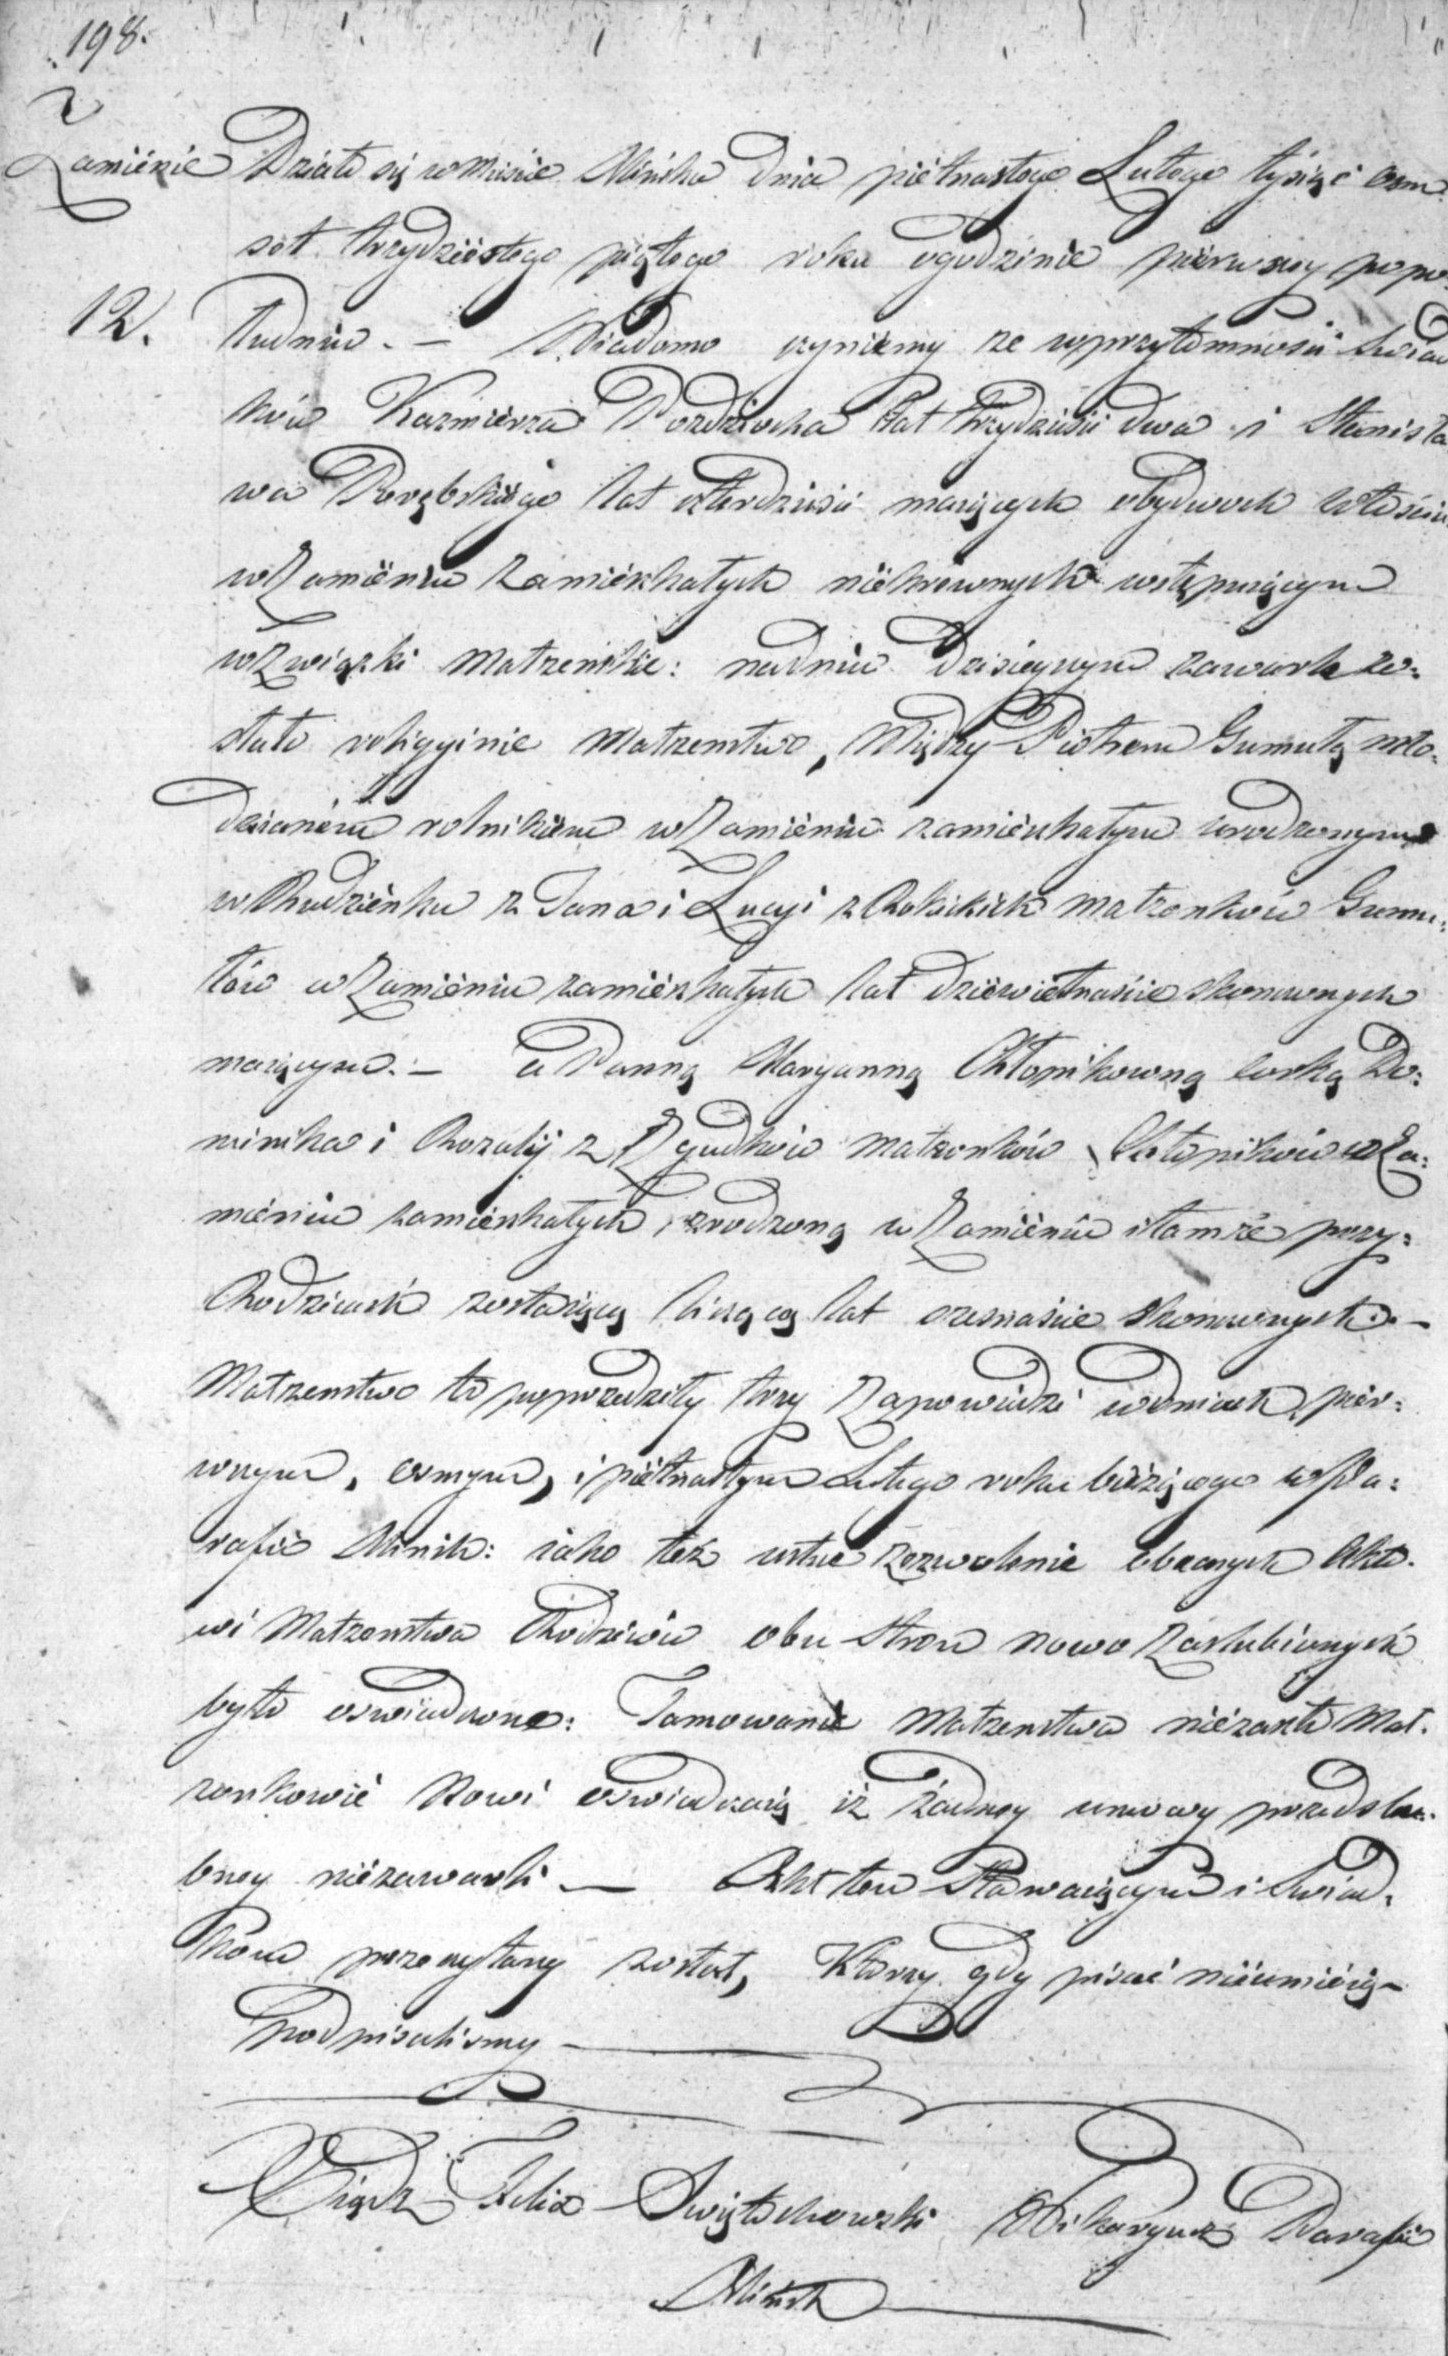 198.
Zamienie Działo się w Mieście Mińsku Dnia piętnastego Lutego tysiąc osm
set trzydziestego piątego roku o godzinie pierwszey popo-
12. łudniu. — Wiadomo czyniemy ze w przytomności Świad
ków Kazmierza Pozdziocha lat trzydzieści dwa i Stanisła
wa Porębskiego lat czterdzieści maiących obydwoch włościan
w Zamieniu zamieszkałych niekrewnych wstępuiącym
w Związki Matrzenskie: na dniu dzisieyszym zawarte zo=
stało religyinie Matrzenstwo, Między Piotrem Gumułą mło=
dzianem rolnikiem w Zamieniu zamieszkałym urodzonym
w Rudzienku z Jana i Lucyi z Rokickich Matzonków Gumu=
łów w Zamieniu zamieszkałych lat dziewietnascie skonczonych
maiącym: — a Panną Maryanną Chłopikowną corką Do=
minika i Rozalij z Zgudków Matzonków Chłopików w Za=
mieniu zamieszkałych, zrodzoną w Zamieniu i tamże przy=
Rodzicach zostaiącą liczącą lat szesnaście skonczonych. —
Matzenstwo to poprzedziły trzy Zapowiedzi w dniach pier=
wszym, osmym, i piętnastym Lutego roku bieżącego w Pa=
rafii Mińsk: iako też ustne zezwolenie obecnych Akto-
wi Matzenstwa Rodziców obu stron nowo Zaslubionych
było oswiadczone: Tamowanie Matzenstwa niezaszło Mał-
zonkowie Nowi oswiadczaią iż żadney umowy przedslu=
bney niezawarli — Akt ten Stawaiącym i Świad=
kom przeczytany został, Którzy gdy pisać nieumieią —
podpisalismy —
Xiądz Felix Swiętochowski Wikaryusz Parafii
Mińsk